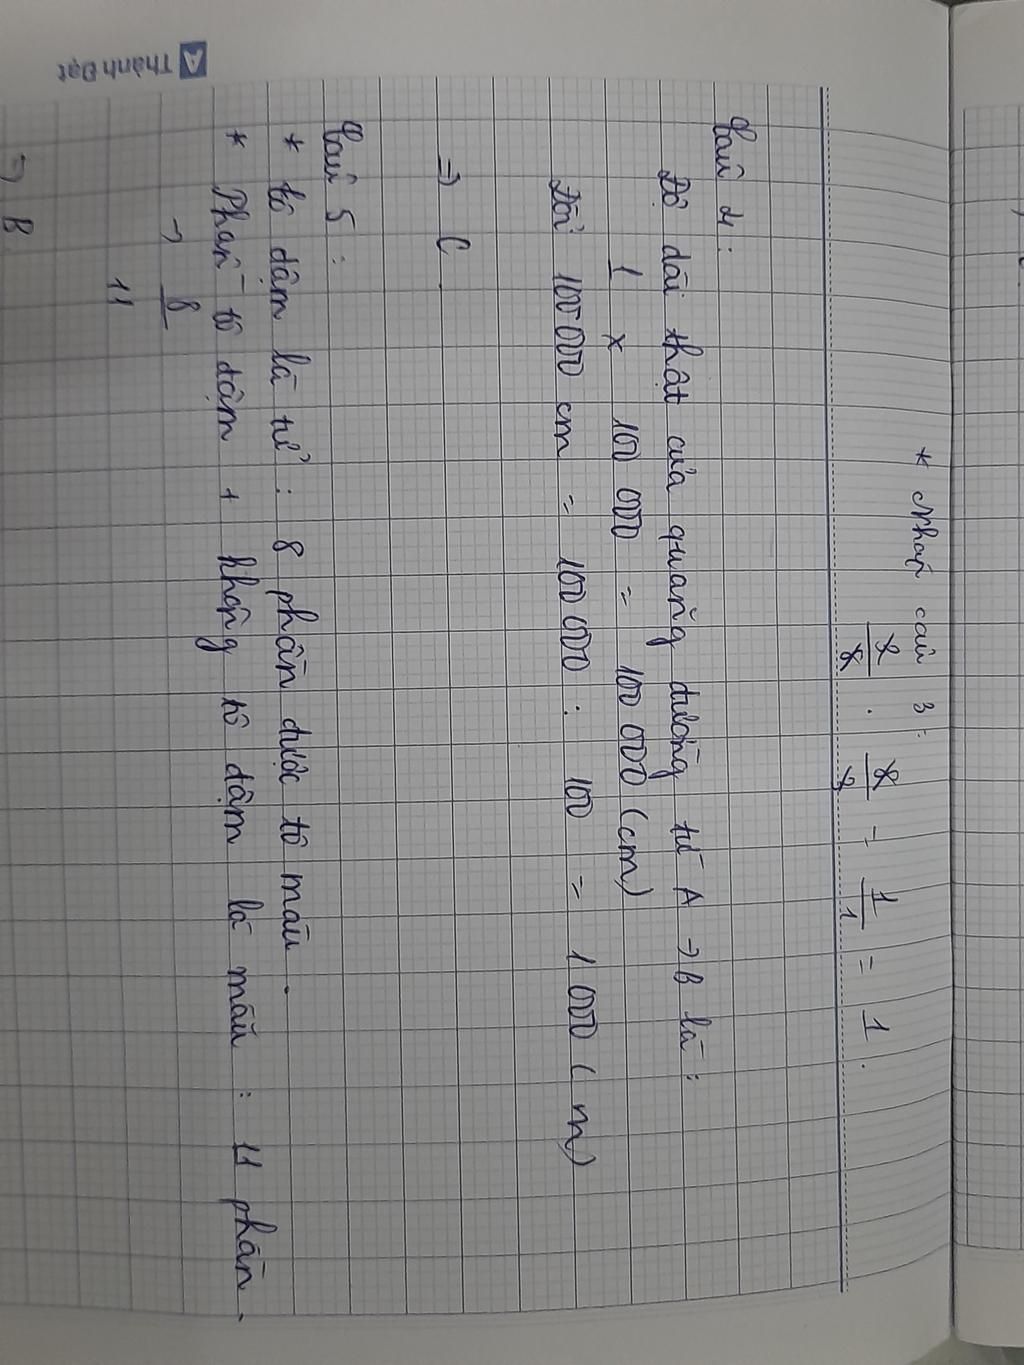 * Nháp câu 3:
2/8 . 8/2 = 1/1 = 1.
Câu 4:
Độ dài thật của quãng đường từ A → B là:
1 x 100 000 = 100 000 (cm)
Đổi 100 000 cm = 100 000 : 100 = 1 000 (m)
=> C
Câu 5:
* tô đậm là tử : 8 phần được tô màu.
* Phần tô đậm + không tô đậm là mẫu : 11 phần.
→ 8
11
=> B
Thành Đạt